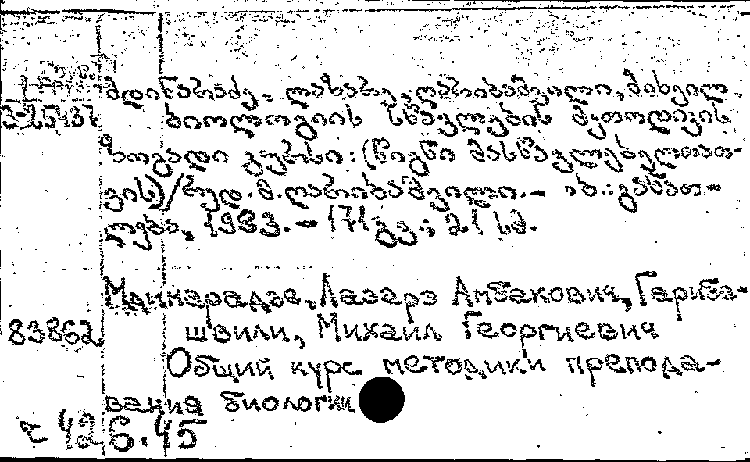 მდინარაძე, ლაზარე, ღარიბაშვილი, მიხეილ.
ბიოლოგიის სწავლების მეთოდიკის
ზოგადი კურსი: (წიგნი მასწავლებელთათ-
ვის)/რედ. მ. ღარიბაშვილი. – თბ.: განათ-
ლება, 1983. – 171 გვ.; 21 სმ.
Мдинарадзе, Лазарэ Амбакович, Гариба-
83862 швили, Михаил Георгиевич
Общий курс методики препода-
вания биологии
42 6.45